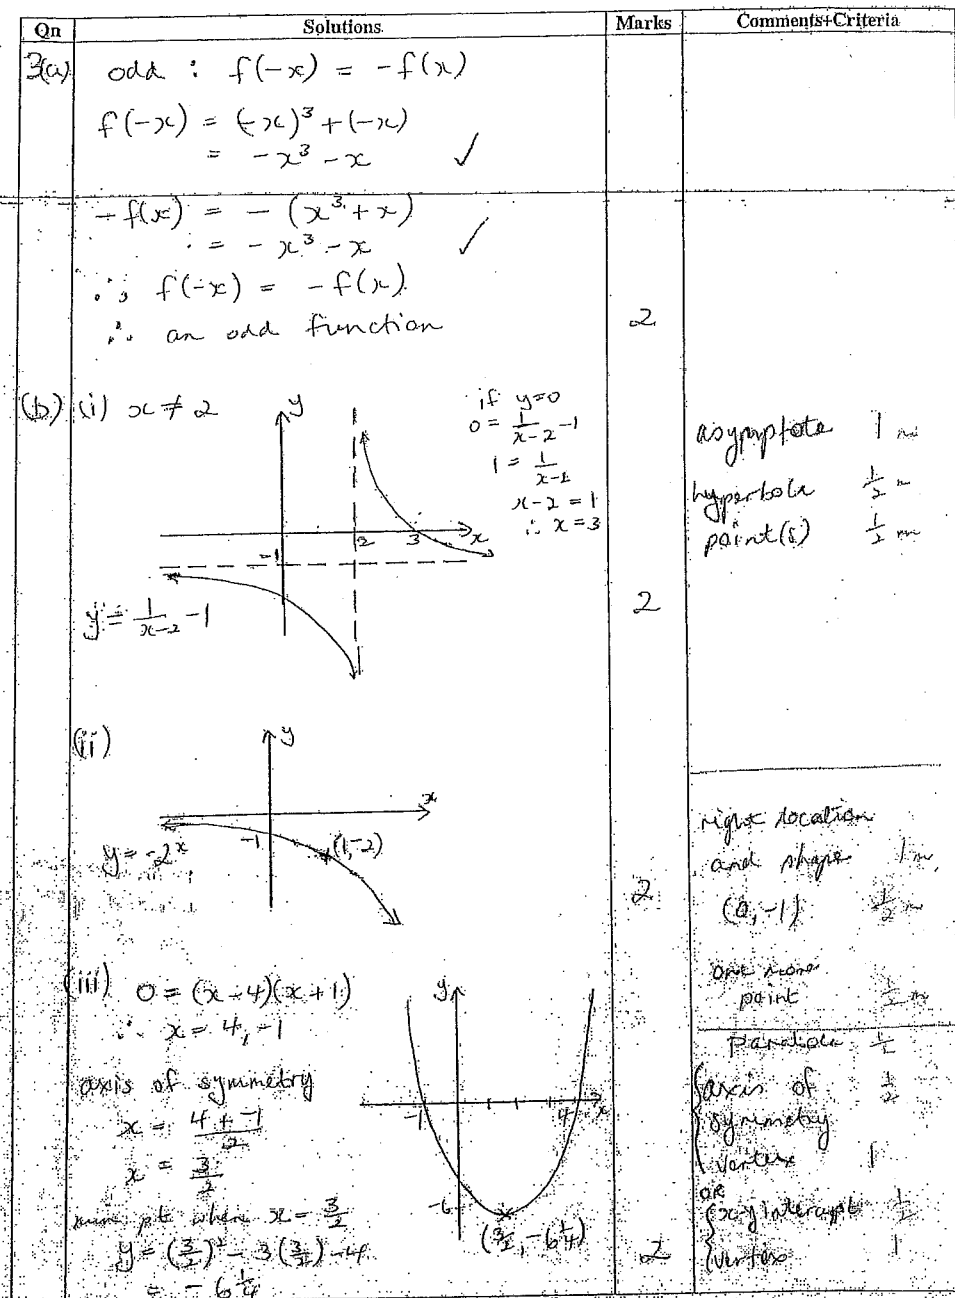 Qn Solutions Marks Comments+Criteria
3(a) odd : f(-x) = -f(x)
f(-x) = (-x)³ + (-x)
= -x³ - x ✓
-f(x) = - (x³ + x)
= -x³ - x ✓
∴ f(-x) = -f(x)
∴ an odd function 2
(b) (i) x ≠ 2
y
if y=0
0 = 1/(x-2) - 1
1 = 1/(x-2)
x-2 = 1
∴ x = 3
2 3 x
-1
y = 1/(x-2) - 1
2
asymptote 1 m
hyperbola ½ m
point(s) ½ m
(ii)
y
x
-1 (1,-2)
y = -2ˣ
2
right location
and shape 1 m
(0,-1) ½ m
one more
point ½ m
(iii) 0 = (x-4)(x+1)
∴ x = 4, -1
axis of symmetry
x = (4 + -1)/2
x = 3/2
min pt when x = 3/2
y = (3/2)² - 3(3/2) - 4
= -6¼
y
-1 4 x
-6
(3/2, -6¼)
2
Parabola ½
axis of ½
symmetry
vertex 1
OR
x-y intercept ½
vertex 1